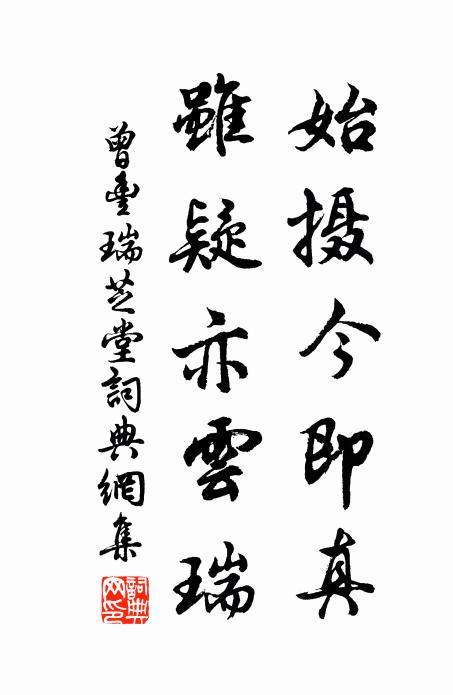 始摄今即真
雖疑亦雲瑞
曾豊瑞芝堂詞典網集
詞典網印